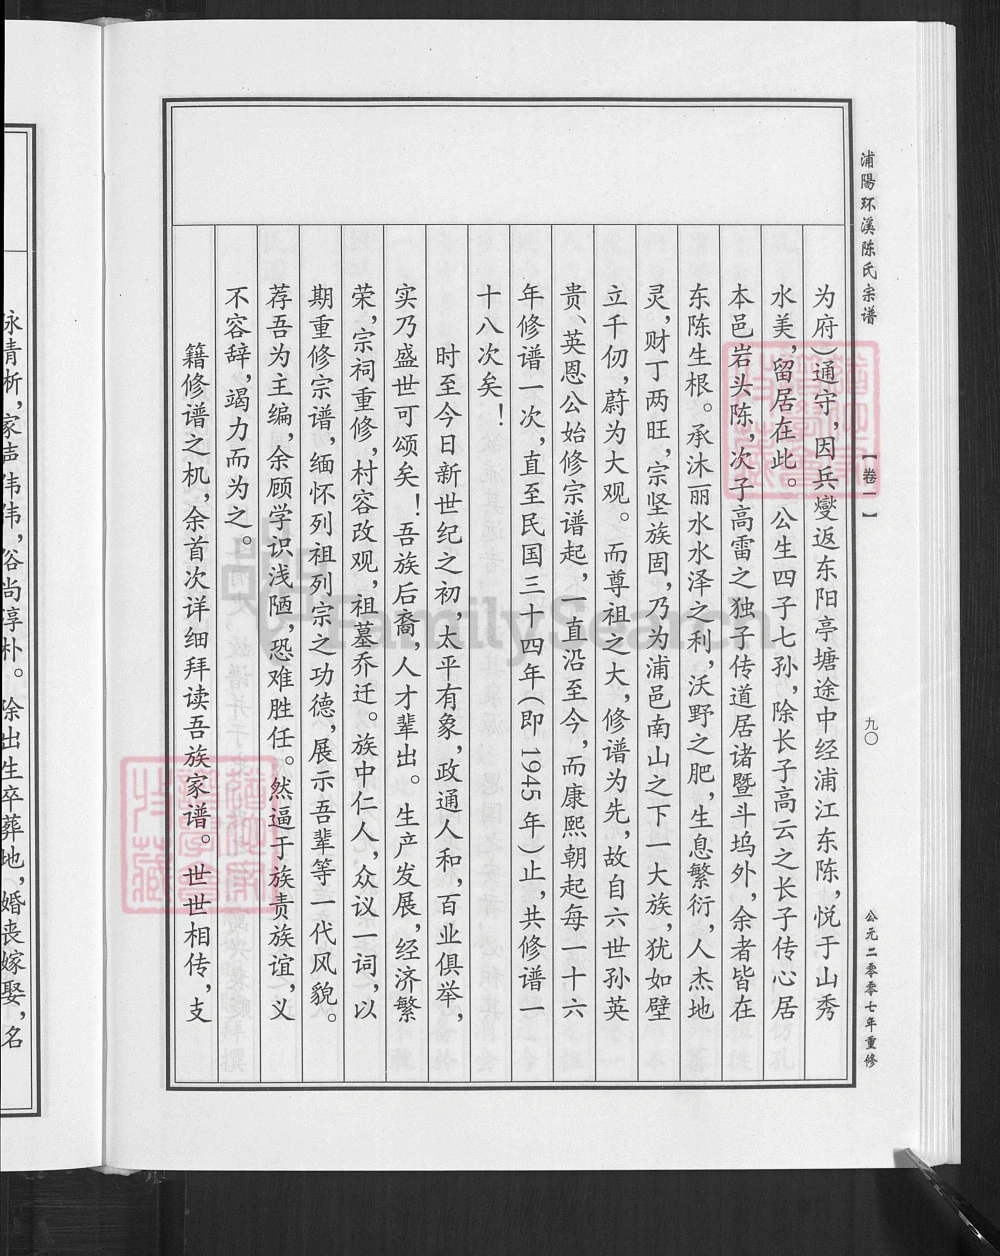 浦陽环溪陈氏宗谱
【卷一】
九〇
公元二零零七年重修
为府)通守,因兵燹返东阳亭塘途中经浦江东陈,悦于山秀
水美,留居在此。公生四子七孙,除长子高云之长子传心居
本邑岩头陈,次子高雷之独子传道居诸暨斗坞外,余者皆在
东陈生根。承沐丽水水泽之利,沃野之肥,生息繁衍,人杰地
灵,财丁两旺,宗坚族固,乃为浦邑南山之下一大族,犹如壁
立千仞,蔚为大观。而尊祖之大,修谱为先,故自六世孙英
贵、英恩公始修宗谱起,一直沿至今,而康熙朝起每一番十六
年修谱一次,直至民国三十四年(即1945年)止,共修谱一
十八次矣!
时至今日新世纪之初,太平有象,政通人和,百业俱举,
实乃盛世可颂矣!吾族后裔,人才辈出。生产发展,经济繁
荣,宗祠重修,村容改观,祖墓乔迁。族中仁人,众议一词,以
期重修宗谱,缅怀列祖列宗之功德,展示吾辈等一代风貌。
荐吾为主编,余顾学识浅陋,恐难胜任。然逼于族责族谊,义
不容辞,竭力而为之。
籍修谱之机,余首次详细拜读吾族家谱。世世相传,支
清析,家声伟伟,俗尚淳朴。除出生卒葬地,婚丧嫁娶,名
FamilySearch